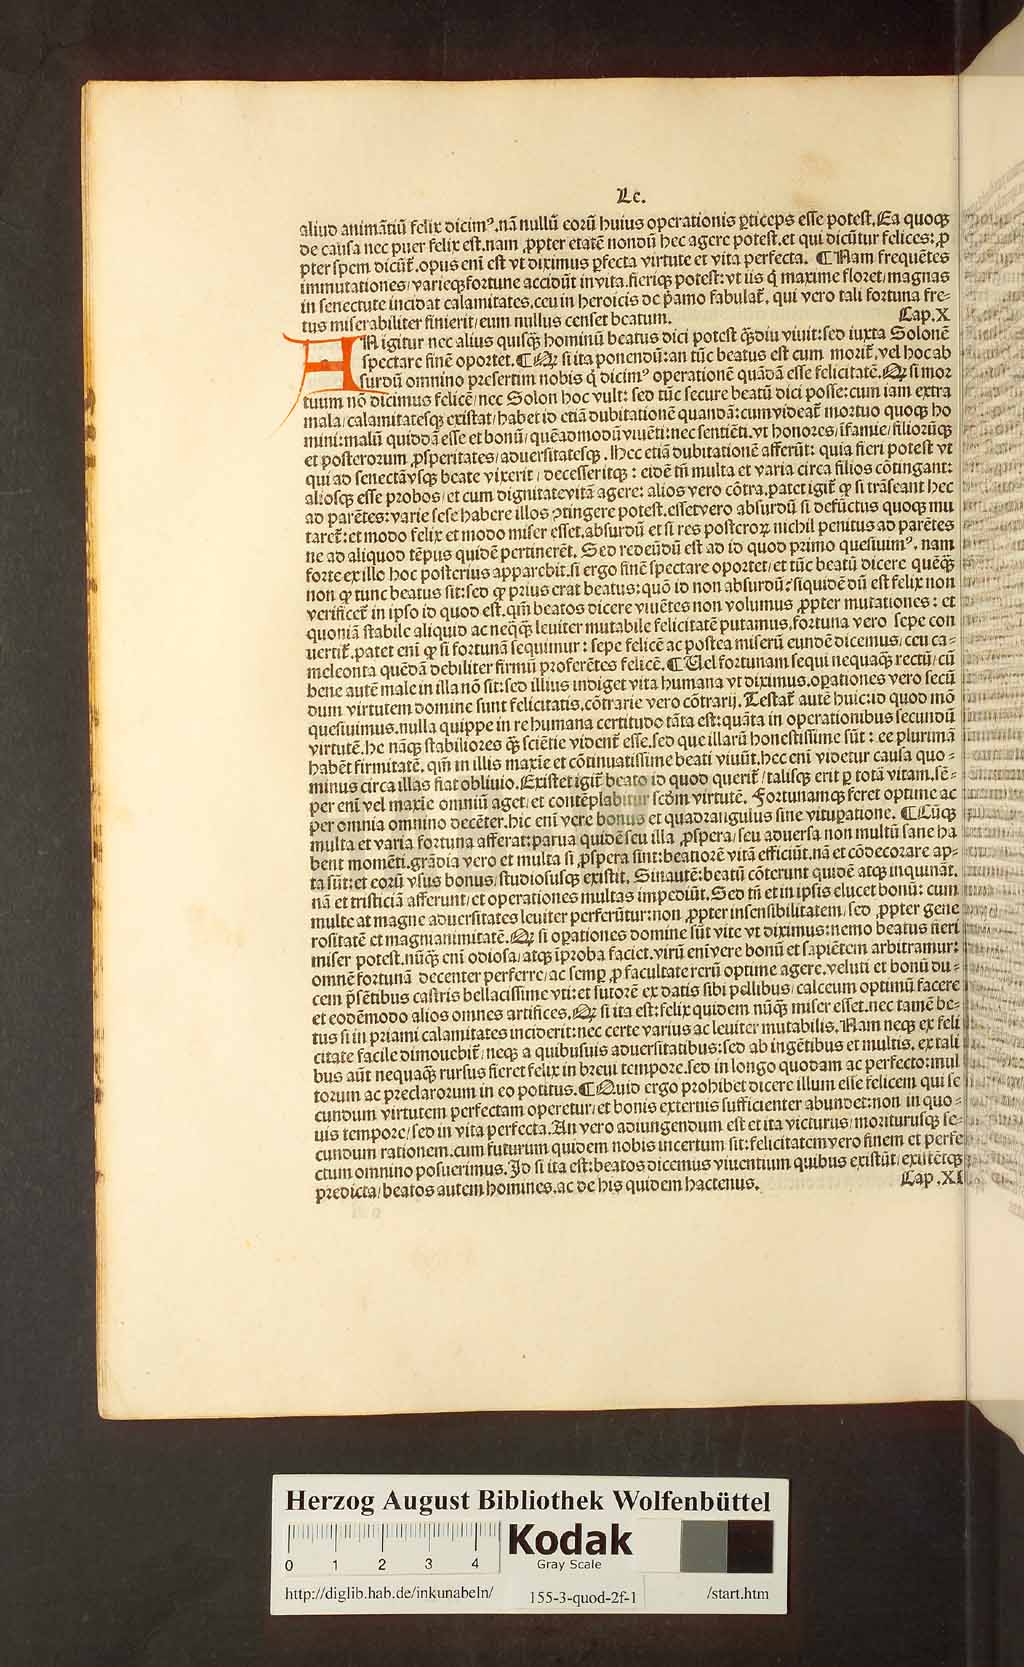 Lc.
aliud animātiū felix dicimꝰ.nā nullū eorū huius operationis ꝑticeps esse potest.Ea quoqꝫ
de causa nec puer felix est.nam ꝓpter etatē nondū hec agere potest.et qui dicūtur felices:ꝓ
pter spem dicūt᷑.opus eni est vt diximus ꝑfecta virtute et vita perfecta. ¶ Nam frequētes
immutationes/varieqꝫ fortune accidūt in vita.fieriqꝫ potest:vt iis q̇ maxime floret/magnas
in senectute incidat calamitates.ceu in heroicis de p̄amo fabulat᷑. qui vero tali fortuna fre-
tus miserabiliter finierit/eum nullus censet beatum. Cap.X
AN igitur nec alius quisqꝫ hominū beatus dici potest qȝ̄diu viuit:sed iuxta Solonē
spectare finē oportet.¶ Qꝛ si ita ponendū:an tūc beatus est cum morit᷑.vel hoc ab
surdū omnino presertim nobis q̇ dicimꝰ operationē quādā esse felicitatē.Qꝛ si mor
tuum nō dicimus felicē/nec Solon hoc vult: sed tūc secure beatū dici posse:cum iam extra
mala/calamitatesqꝫ existat/habet id etiā dubitationē quandā:cum videat᷑ mortuo quoqꝫ ho
mini:malū quiddā esse et bonū/quēadmodū viuēti:nec sentiēti.vt honores/ īfamie/filiorūqꝫ
et posterorum ꝓsperitates/aduersitatesqꝫ.Hec etiā dubitationē afferūt: quia fieri potest vt
qui ad senectāvsqꝫ beate vixerit/ decesseritqꝫ: eidē tn̄ multa et varia circa filios cōtingant:
aliosqꝫ esse probos/et cum dignitatevitā agere: alios vero cōtra.patet igit᷑ ꝙ si trāseant hec
ad parētes:varie sese habere illos ꝯtingere potest.essetvero absurdū si defūctus quoqꝫ mu
taret᷑:et modo felix et modo miser esset.absurdū et si res posteroꝝ nichil penitus ad parētes
ne ad aliquod tēpus quidē pertinerēt. Sed redeūdū est ad id quod primo quesiuimꝰ. nam
forte ex illo hoc posterius apparebit.si ergo finē spectare oportet/et tūc beatū dicere quēqȝ̄
non ꝙ tunc beatus sit:sed ꝙ prius erat beatus:quō id non absurdū:siquidē dū est felix non
verificet᷑ in ipso id quod est.qm̄ beatos dicere viuētes non volumus ꝓpter mutationes: et
quoniā stabile aliquid ac neqȝ̄qȝ̄ leuiter mutabile felicitatē putamus.fortuna vero sepe con
uertit᷑.patet eni ꝙ si fortunā sequimur: sepe felicē ac postea miserū eundē dicemus/ceu ca-
meleonta quēdā debiliter firmū proferētes felicē.¶ Uel fortunam sequi nequaqȝ̄ rectū/cū
bene autē male in illa nō sit:sed illius indiget vita humana vt diximus.oꝑationes vero secū
dum virtutem domine sunt felicitatis.cōtrarie vero cōtrarij.Testat᷑ autē huic:id quod mō
quesiuimus.nulla quippe in re humana certitudo tāta est:quāta in operationibus secundū
virtutē.he nāqꝫ stabiliores qȝ̄ sciētie vident᷑ esse.sed que illarū honestissime sūt: ee plurimā
habēt firmitatē. qm̄ in illis maxie et cōtinuatissime beati viuūt.hec eni videtur causa quo-
minus circa illas fiat obliuio.Existet igit᷑ beato id quod querit᷑/talisqꝫ erit ꝑ totā vitam.sē-
per eni vel maxie omniū aget/et contēplabitur scdm̄ virtutē. Fortunamqꝫ feret optime ac
per omnia omnino decēter.hic eni vere bonus et quadrangulus sine vituꝑatione. ¶ Cūqꝫ
multa et varia fortuna afferat:parua quidē seu illa ꝓspera/seu aduersa non multū sane ha
bent momēti.grādia vero et multa si ꝓspera sint:beatiorē vitā efficiūt.nā et cōdecorare ap-
ta sūt:et eorū vsus bonus/studiosusqꝫ existit. Sinautē:beatū cōterunt quidē atqꝫ inquināt.
nā et tristiciā afferunt/et operationes multas impediūt.Sed tn̄ et in ipsis elucet bonū: cum
multe at magne aduersitates leuiter perferūtur:non ꝓpter insensibilitatem/sed ꝓpter gene
rositatē et magnanimitatē.Qꝛ si oꝑationes domine sūt vite vt diximus:nemo beatus fieri
miser potest.nūqȝ̄ eni odiosa/atqꝫ īproba faciet.virū eni vere bonū et sapiētem arbitramur:
omnē fortunā decenter perferre/ac semꝑ ꝓ facultate rerū optime agere.veluti et bonū du-
cem p̄sētibus castris bellacissime vti:et sutorē ex datis sibi pellibus/calceum optimū facere
et eodēmodo alios omnes artifices.Qꝛ si ita est:felix quidem nūqȝ̄ miser esset.nec tamē be-
tus si in priami calamitates inciderit:nec certe varius ac leuiter mutabilis.Nam neqꝫ ex feli
citate facile dimouebit᷑/neqꝫ a quibusuis aduersitatibus:sed ab ingētibus et multis. ex tali
bus aūt nequaqȝ̄ rursus fieret felix in breui tempore.sed in longo quodam ac perfecto:mul
torum ac preclarorum in eo potitus.¶ Quid ergo prohibet dicere illum esse felicem qui se
cundum virtutem perfectam operetur/et bonis externis sufficienter abundet:non in quo-
uis tempore/sed in vita perfecta.An vero adiungendum est et ita victurus/moriturusqꝫ se-
cundum rationem.cum futurum quidem nobis incertum sit:felicitatemvero finem et perfe
ctum omnino posuerimus.Id si ita est:beatos dicemus viuentium quibus existūt/existētqꝫ
predicta/beatos autem homines.ac de his quidem hactenus. Cap.XI
Herzog August Bibliothek Wolfenbüttel
0 1 2 3 4
Kodak
Gray Scale
http://diglib.hab.de/inkunabeln/ 155-3-quod-2f-1 /start.htm